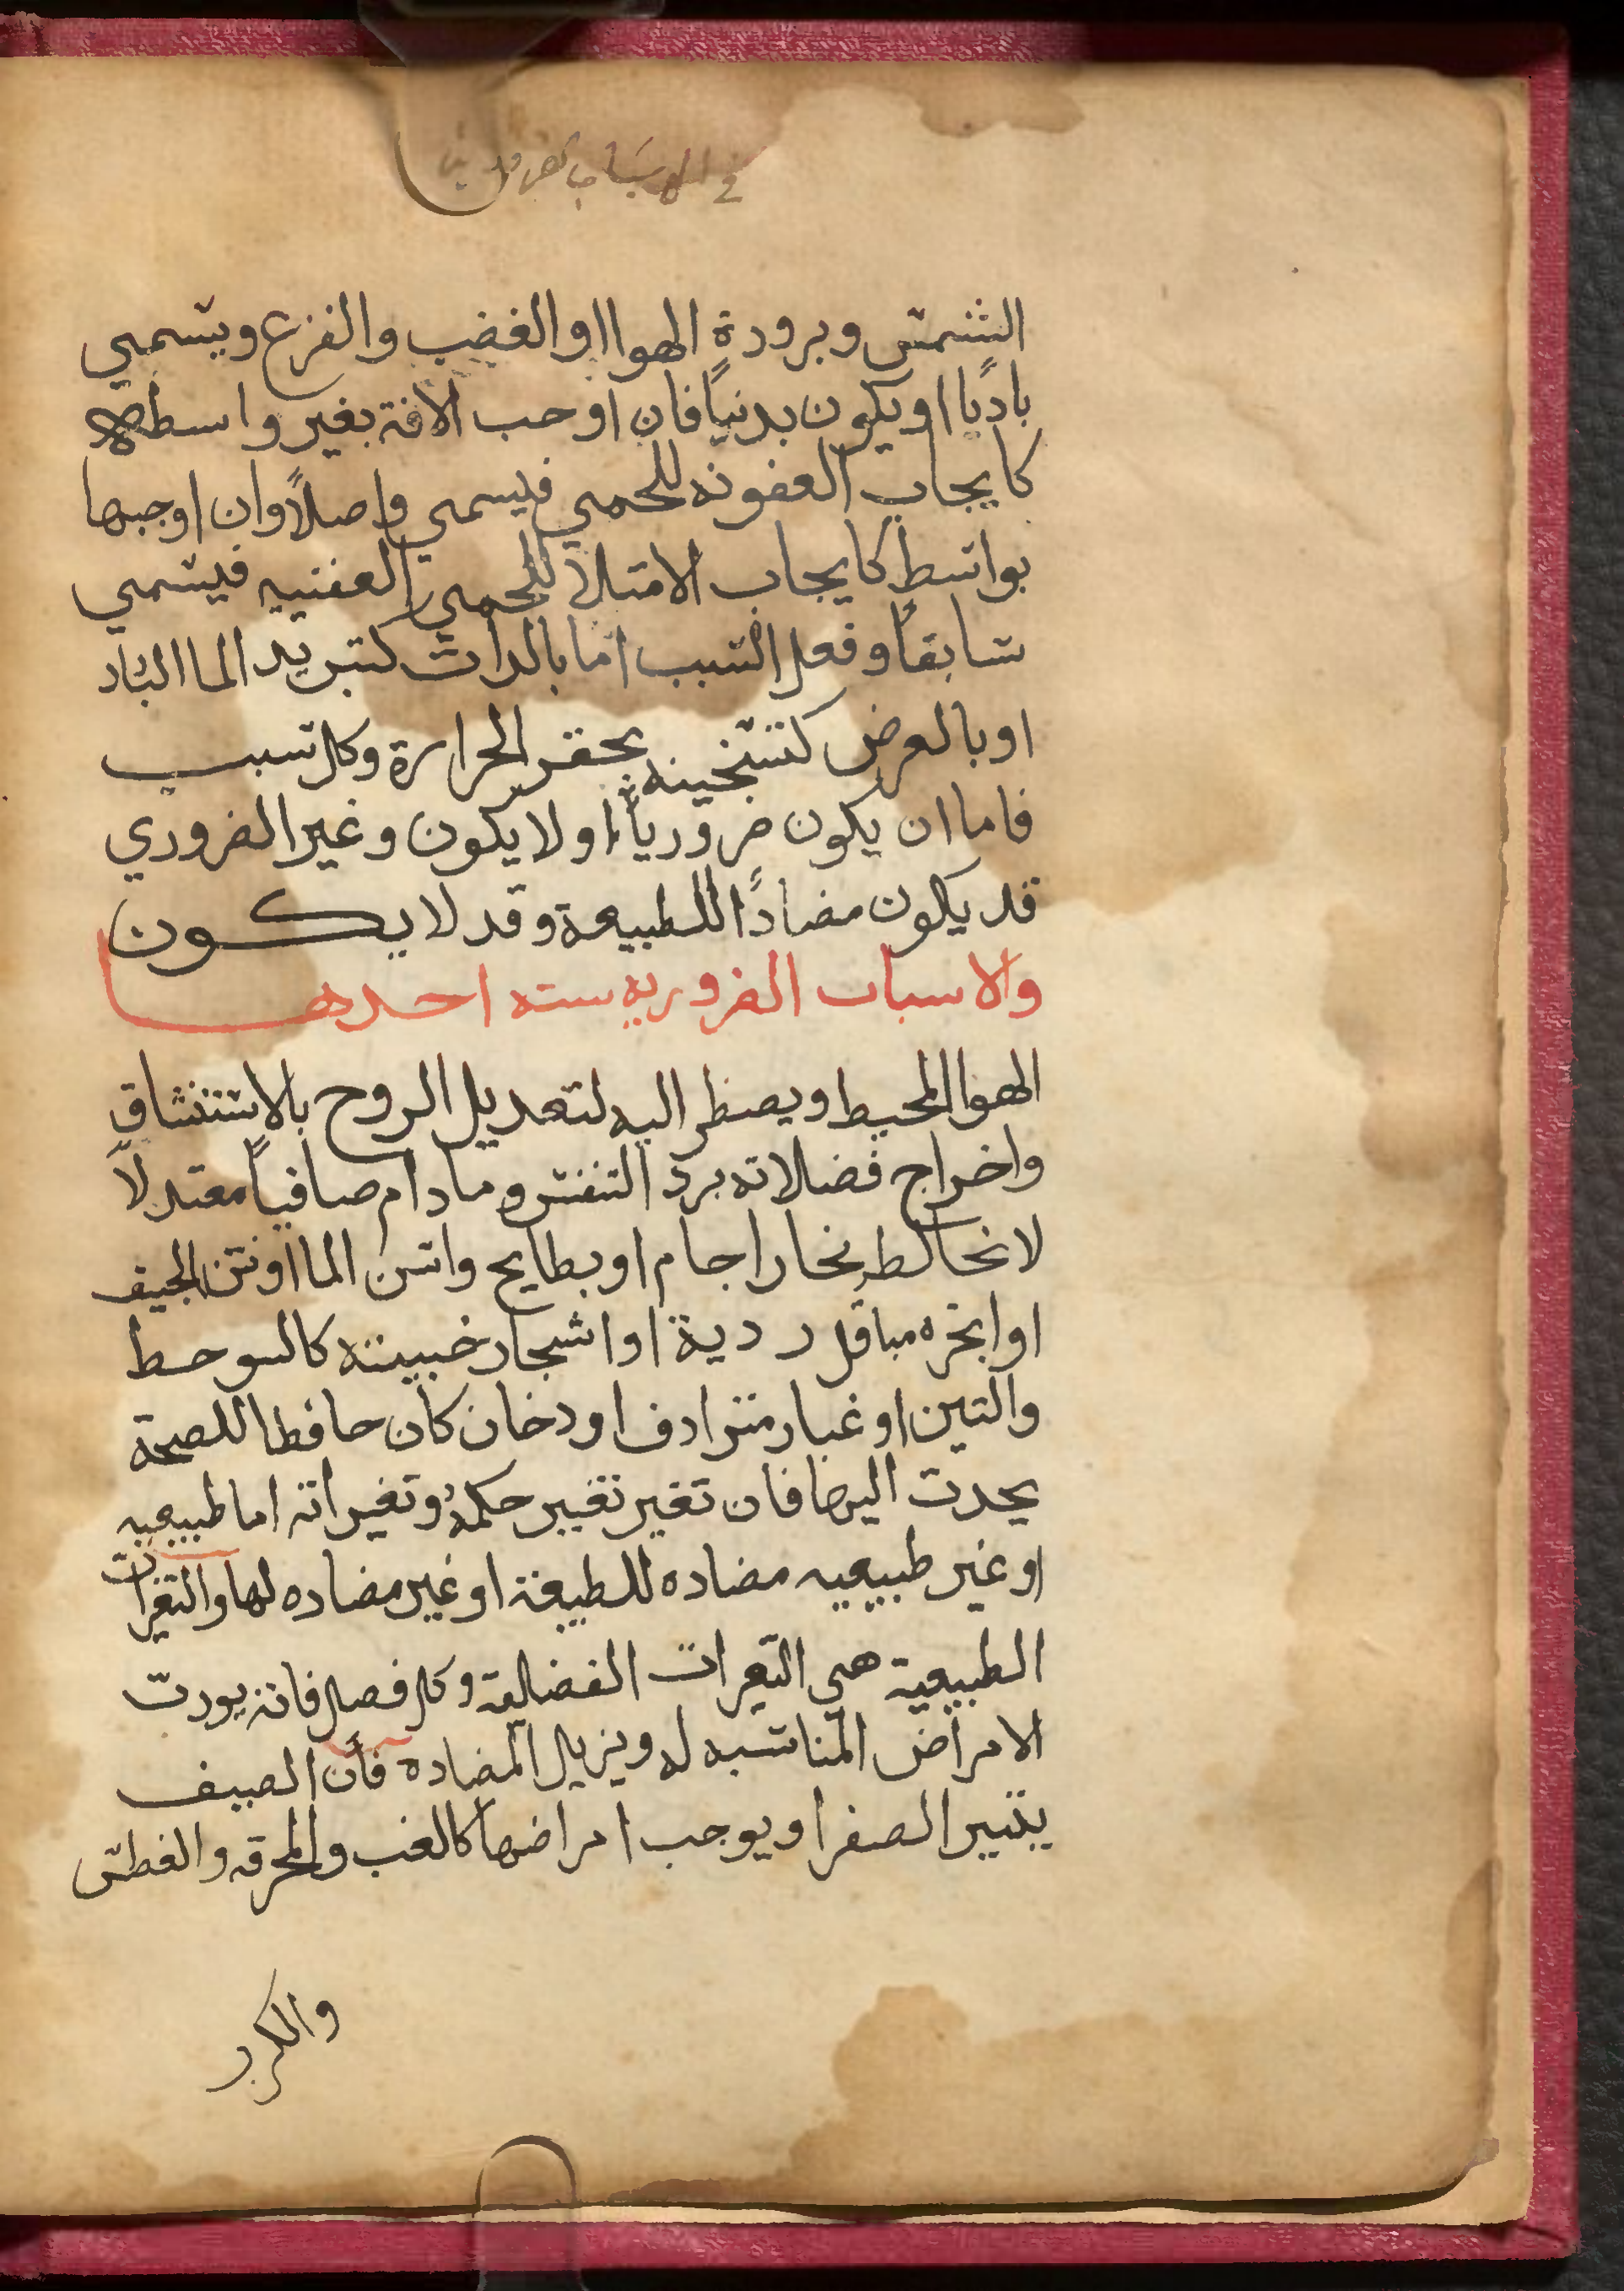 في الاسباب الضرورية
الشمس وبرودة الهوا او الغضب والفزع ويسمي
باديًا او يكون بدنيًا فان اوجب الافة بغير واسطه
كايجاب العفونه للحمي فيسمي واصلاً وان اوجبها
بواسطه كايجاب الامتلا للحمي العفنيه فيسمي
سابقًا وفعل السبب اما بالذات كتبريد الما البارد
او بالعرض كتسخينه بحقن الحرارة وكل سبب
فاما ان يكون ضروريًا او لا يكون وغير الضروري
قد يكون مضادًا للطبيعة وقد لا يكون
والاسباب الضروريه سته احدها
الهوا المحيط ويضطر اليه لتعديل الروح بالاستنشاق
واخراج فضلاته برد التنفس وما دام صافيًا معتدلاً
لا تخالطه بخار اجام او بطايح واسن الما او نتن الجيف
او ابخره مباقل ردية او اشجار خبيثه كالسوحط
والتين او غبار مترادف او دخان كان حافظا للصحة
يحدث اليها فان تغير تغير حكمهُ وتغيراته اما طبيعيه
او غير طبيعيه مضاده للطبيعة او غير مضاده لها والتغيرات
الطبيعية هي التغيرات الفضلية وكل فصل فانه يورث
الامراض المناسبه له ويزيل المضاده فأن الصيف
يثير الصفرا ويوجب امراضها كالغب والمحرقه والعطش
والكرب